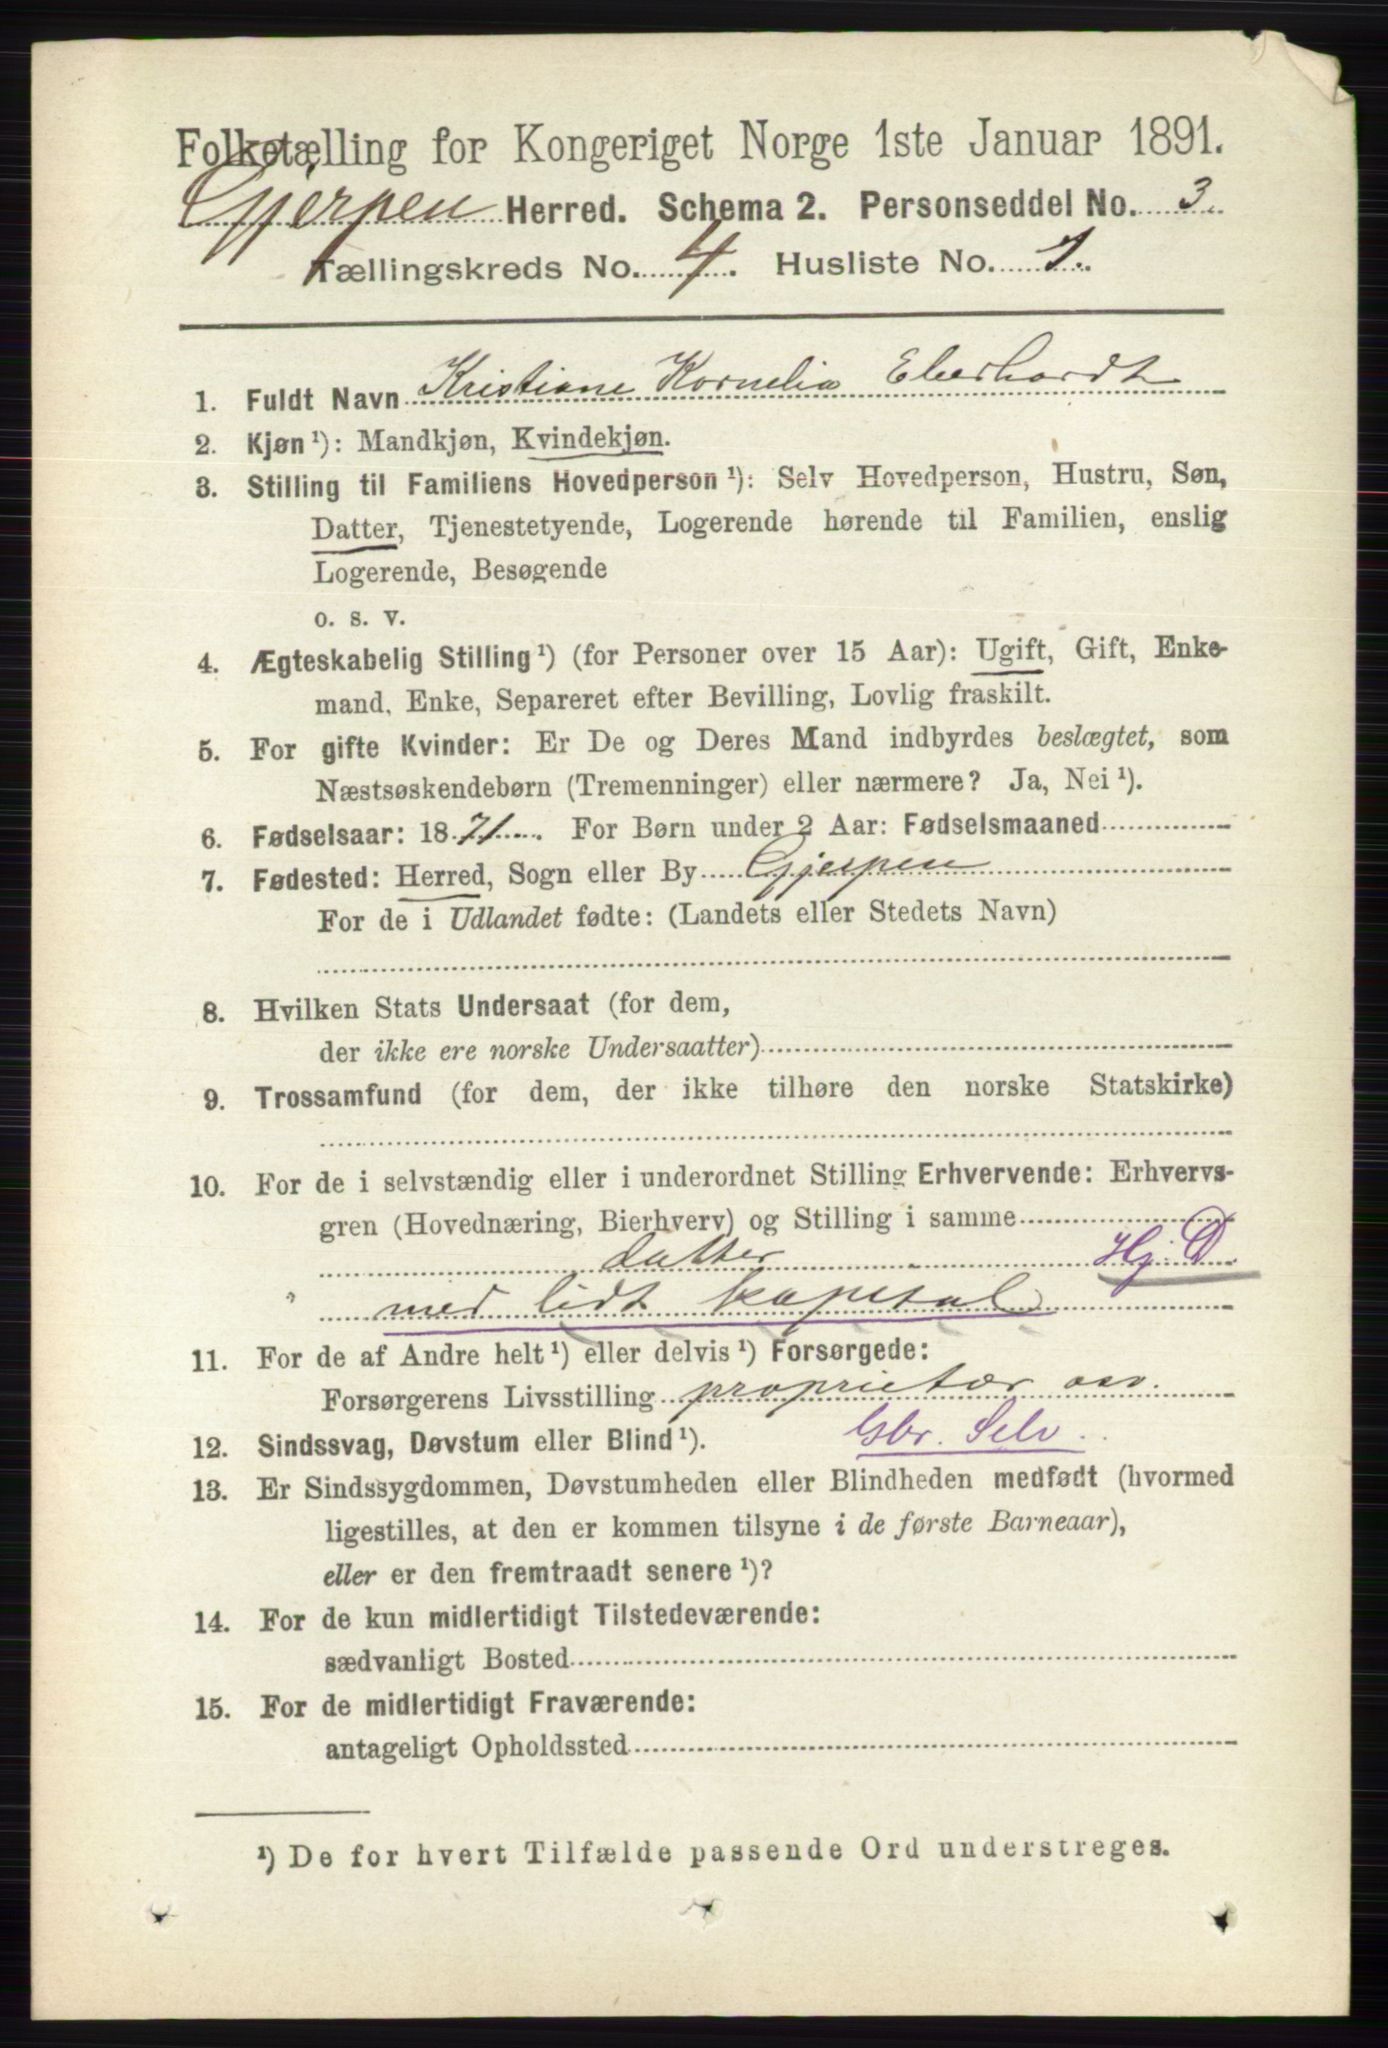 Folketælling for Kongeriget Norge 1ste Januar 1891.
Gjerpen Herred. Schema 2. Personseddel No. 3.
Tællingskreds No. 4. Husliste No. 1.
1. Fuldt Navn Kristiane Kornelia Eberhardt
2. Kjøn¹): Mandkjøn, Kvindekjøn.
3. Stilling til Familiens Hovedperson¹): Selv Hovedperson, Hustru, Søn,
Datter, Tjenestetyende, Logerende hørende til Familien, enslig
Logerende, Besøgende
o. s. v.
4. Ægteskabelig Stilling¹) (for Personer over 15 Aar): Ugift, Gift, Enke-
mand, Enke, Separeret efter Bevilling, Lovlig fraskilt.
5. For gifte Kvinder: Er De og Deres Mand indbyrdes beslægtet, som
Næstsøskendebørn (Tremenninger) eller nærmere? Ja, Nei¹).
6. Fødselsaar: 1871. For Børn under 2 Aar: Fødselsmaaned
7. Fødested: Herred, Sogn eller By Gjerpen
For de i Udlandet fødte: (Landets eller Stedets Navn)
8. Hvilken Stats Undersaat (for dem,
der ikke ere norske Undersaatter)
9. Trossamfund (for dem, der ikke tilhøre den norske Statskirke)
10. For de i selvstændig eller i underordnet Stilling Erhvervende: Erhvervs-
gren (Hovednæring, Bierhverv) og Stilling i samme
datter Hj. D
med lidt kapital
11. For de af Andre helt¹) eller delvis¹) Forsørgede:
Forsørgerens Livsstilling proprietær osv.
12. Sindssvag, Døvstum eller Blind¹). Gbr. Selv.
13. Er Sindssygdommen, Døvstumheden eller Blindheden medfødt (hvormed
ligestilles, at den er kommen tilsyne i de første Barneaar),
eller er den fremtraadt senere¹)?
14. For de kun midlertidigt Tilstedeværende:
sædvanligt Bosted
15. For de midlertidigt Fraværende:
antageligt Opholdssted
¹) De for hvert Tilfælde passende Ord understreges.